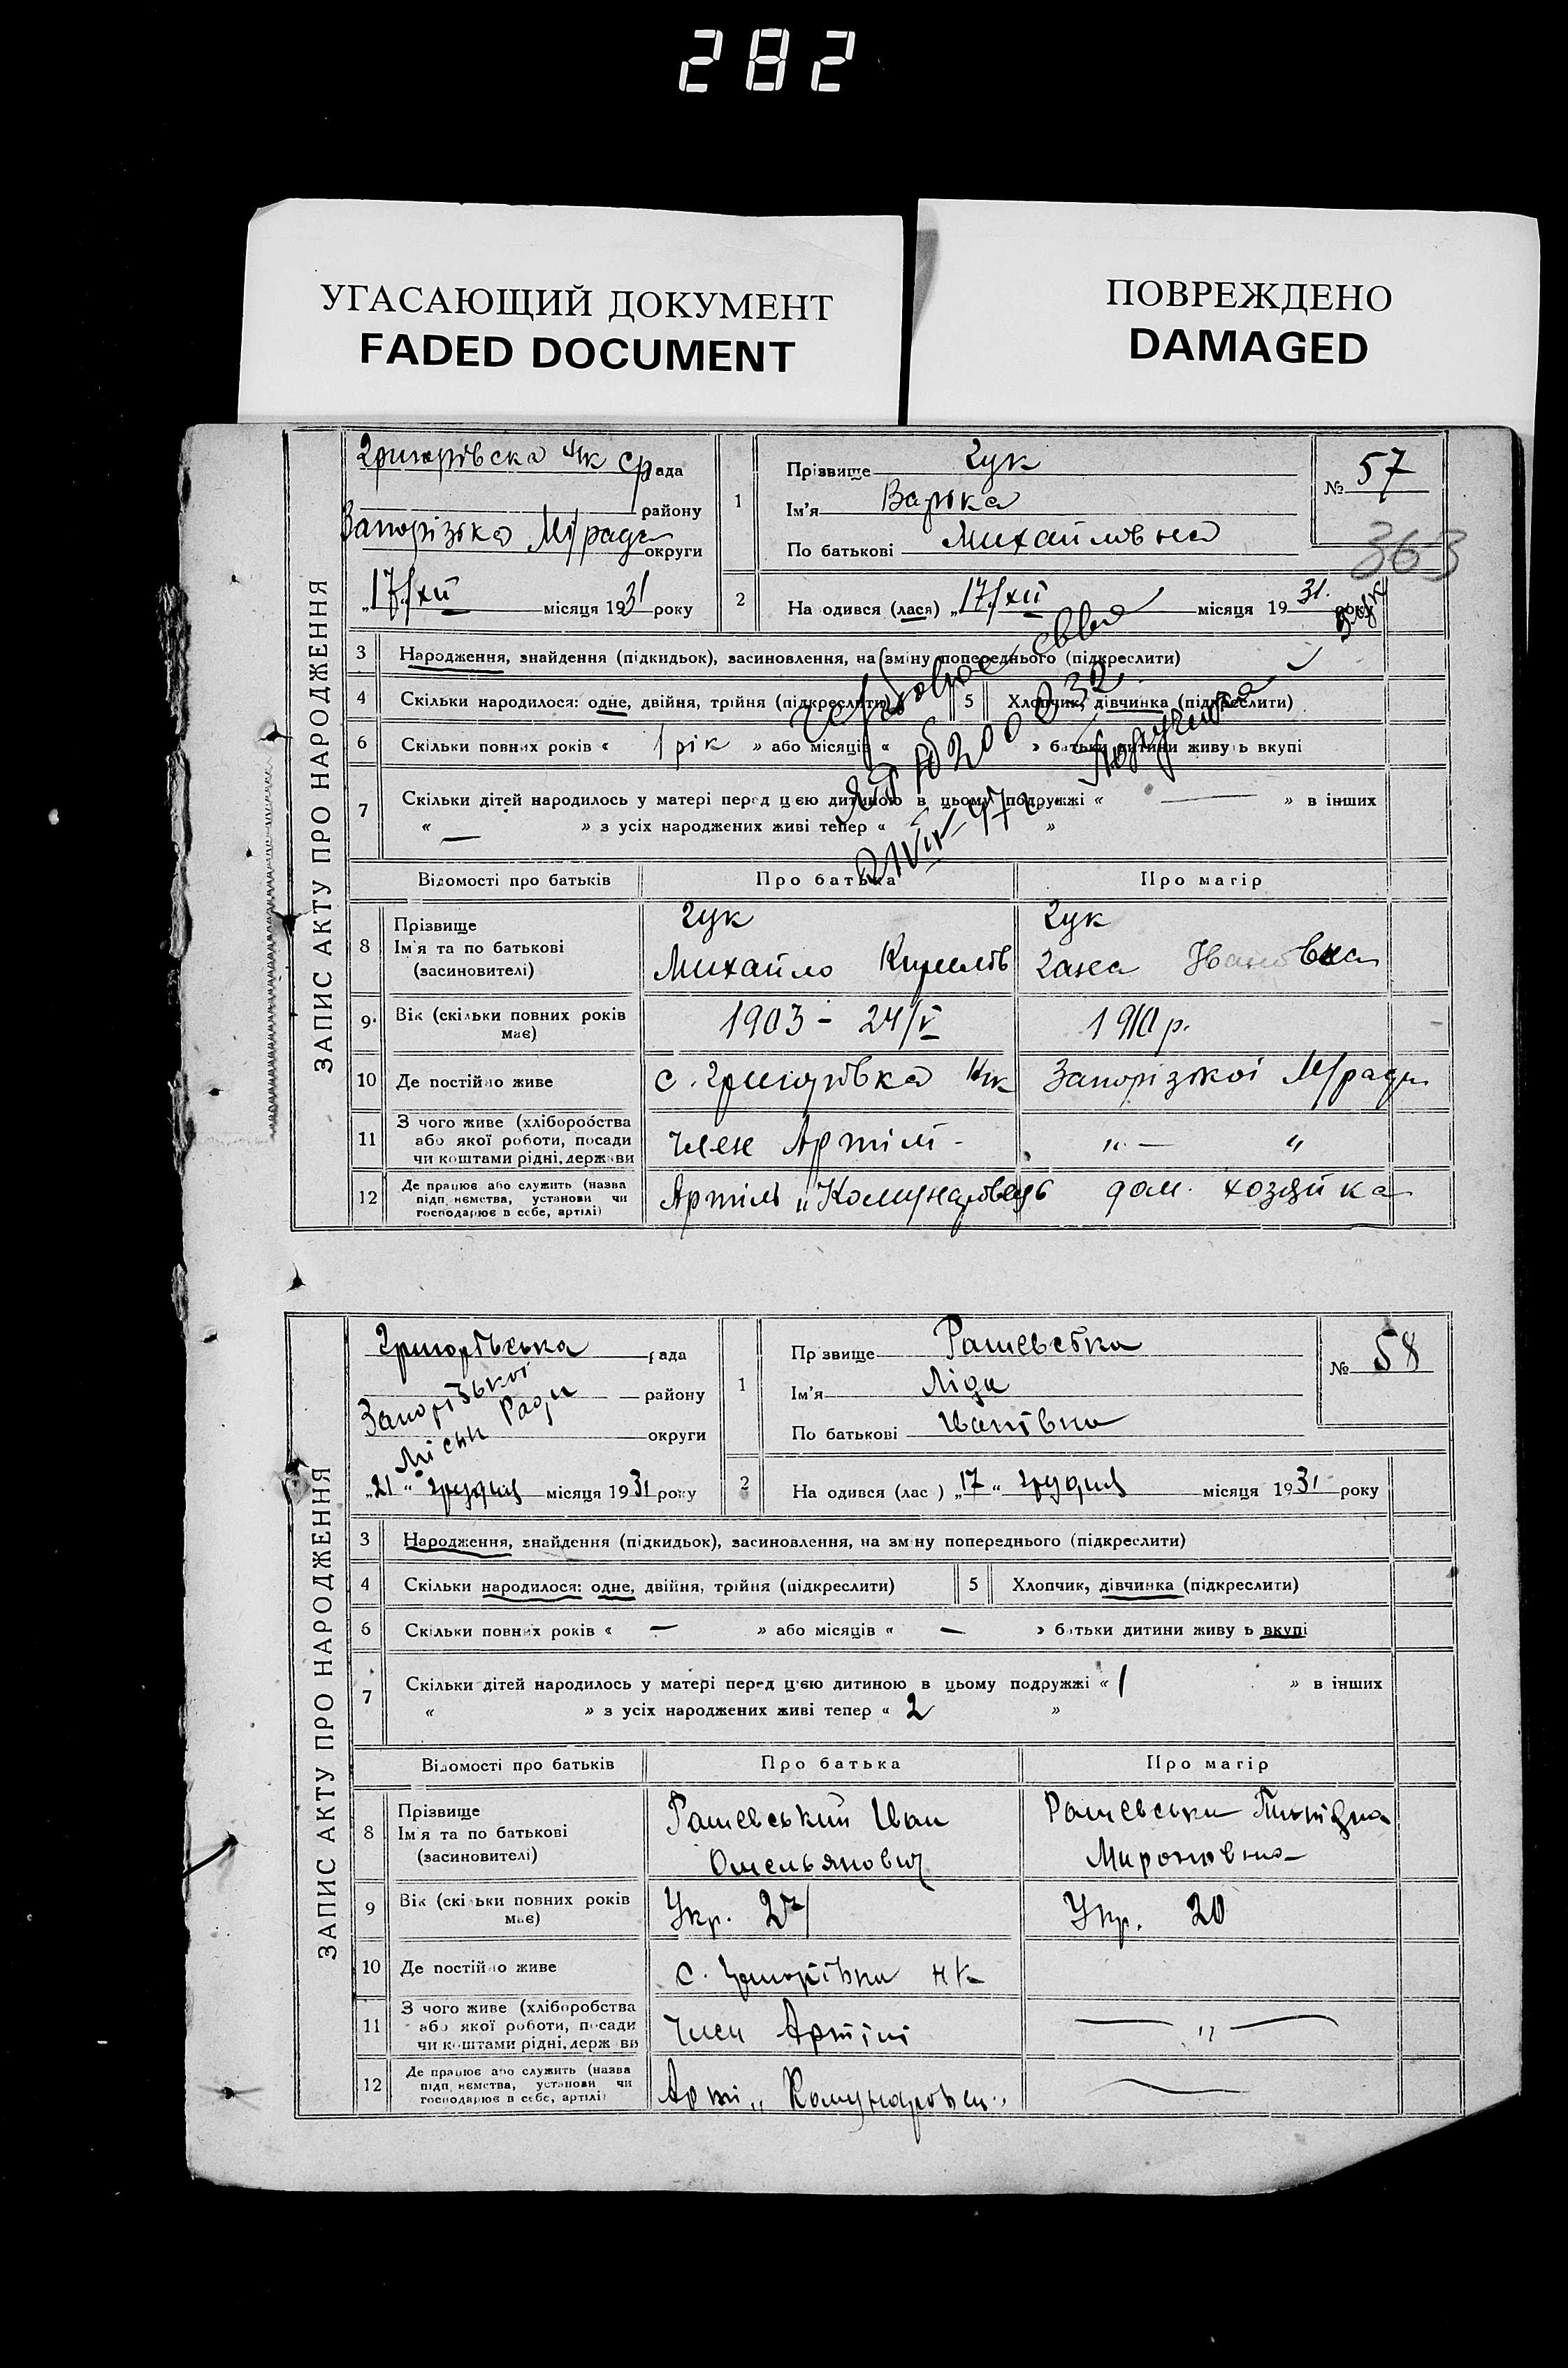 282
УГАСАЮЩИЙ ДОКУМЕНТ
FADED DOCUMENT
ПОВРЕЖДЕНО
DAMAGED
ЗАПИС АКТУ ПРО НАРОДЖЕННЯ
рада
району
Запорізька М/ради
округи
„17/XII місяця 1931 року
1 Прізвище Гук
Ім'я Варька
По батькові Михайловна
№ 57
363
2 На одився (лася) „17/XII місяця 1931. року
3 Народження, знайдення (підкидьок), засиновлення, на зміну попереднього (підкреслити)
4 Скільки народилося: одне, двійня, трійня (підкреслити)
5 Хлопчик, дівчинка (підкреслити)
6 Скільки повних років « 1 рік » або місяців « » батьки дитини живу ь вкупі
7 Скільки дітей народилось у матері перед цією дитиною в цьому подружжі « — » в інших
« — » з усіх народжених живі тепер « »
Відомості про батьків
Про батька
Про матір
8 Прізвище
Ім'я та по батькові
(засиновителі)
Гук
Михайло
Гук
Івановна
9 Вік (скільки повних років
має)
1903 - 24/V
1910 р.
10 Де постійно живе
с. Григорівка
Запорізкої М/ради
11 З чого живе (хліборобства
або якої роботи, посади
чи коштами рідні, держави
член Артілі -
„ — „
12 Де працює або служить (назва
підп иємства, установи чи
господарює в себе, артілі)
Артіль „Комунаровець
дом. хозяйка
ЗАПИС АКТУ ПРО НАРОДЖЕННЯ
Григорівська рада
Запорізької району
Міськ Ради
округи
„21" грудня місяця 1931 року
1 Пр звище Рашевська
Ім'я Ліда
По батькові Іванівна
№ 58
2 На одився (лас ) „17" грудня місяця 1931 року
3 Народження, знайдення (підкидьок), засиновлення, на зм ну попереднього (підкреслити)
4 Скільки народилося: одне, двійня, трійня (підкреслити)
5 Хлопчик, дівчинка (підкреслити)
6 Скільки повних років « — » або місяців « — » б тьки дитини живу ь вкупі
7 Скільки дітей народилось у матері перед цією дитиною в цьому подружжі « 1 » в інших
« » з усіх народжених живі тепер « 2 »
Відомості про батьків
Про батька
Про матір
8 Прізвище
Ім'я та по батькові
(засиновителі)
Рашевський Іван
Омельянович
Рашевська
Мироновна
9 Вік (скі ьки повних років
має)
Укр.
Укр. 20
10 Де постійно живе
с. Григорівка
11 З чого живе (хліборобства
або якої роботи, посади
чи коштами рідні, держ ви
Член Артілі
— „ —
12 Де працює або служить (назва
підп иємства, установи чи
господарює в себе, артілі)
Арті „Комунаровец"